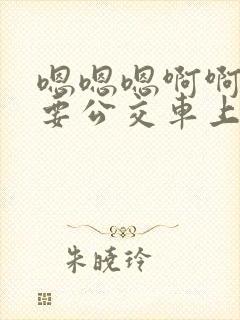 嗯嗯嗯啊啊
要公交車上
朱曉玲